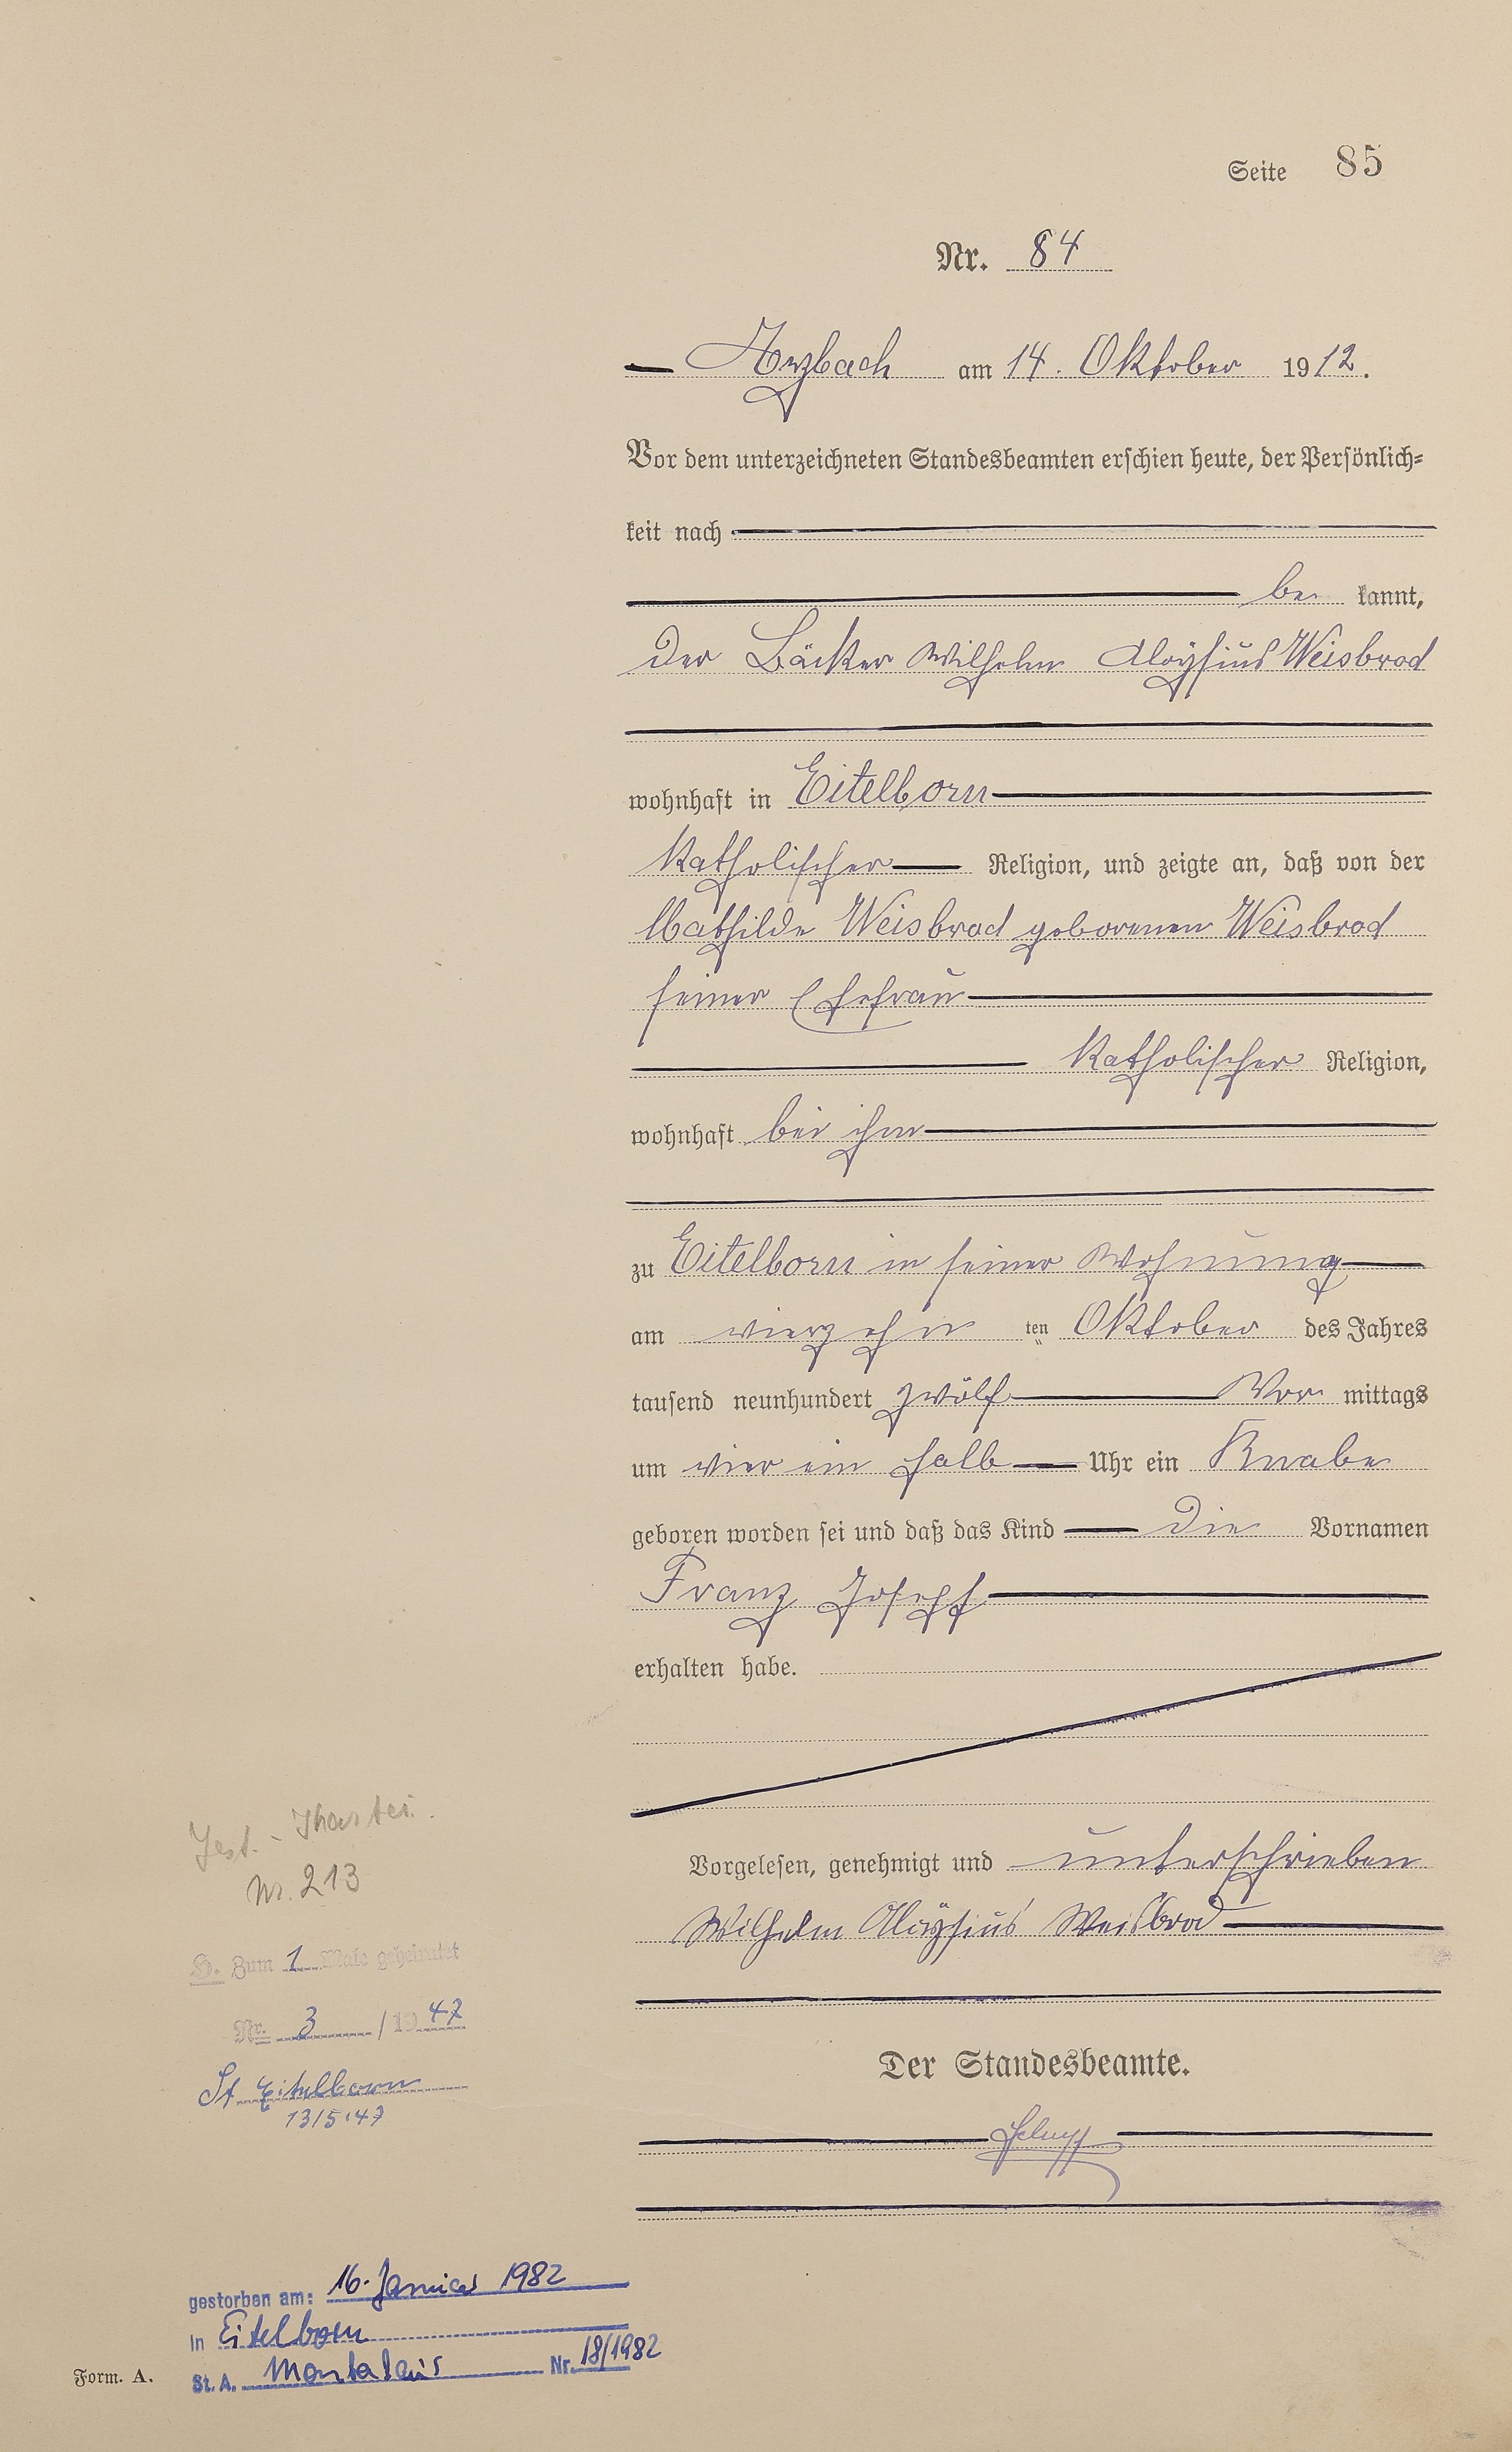 Seite 85
Nr. 84
Arzbach am 14. Oktober 1912.
Vor dem unterzeichneten Standesbeamten erschien heute, der Persönlich-
keit nach
be kannt,
der Bäcker Wilhelm Aloysius Weisbrod
wohnhaft in Eitelborn
katholischer Religion, und zeigte an, daß von der
Mathilde Weisbrod geborenen Weisbrod
seiner Ehefrau
katholischer Religion,
wohnhaft bei ihm
zu Eitelborn in seiner Wohnung
am vierzehn ten Oktober des Jahres
tausend neunhundert zwölf Vor mittags
um vier ein halb Uhr ein Knabe
geboren worden sei und daß das Kind die Vornamen
Franz Joseph
erhalten habe.
Vorgelesen, genehmigt und unterschrieben
Wilhelm Aloysius Weisbrod
Der Standesbeamte.
Nr. 213
H. Zum 1 Male geheiratet
Nr. 3 / 1947
St. Eitelborn
13/5.47
gestorben am: 16. Januar 1982
in Eitelborn
St. A. Montabaur Nr. 18/1982
Form. A.